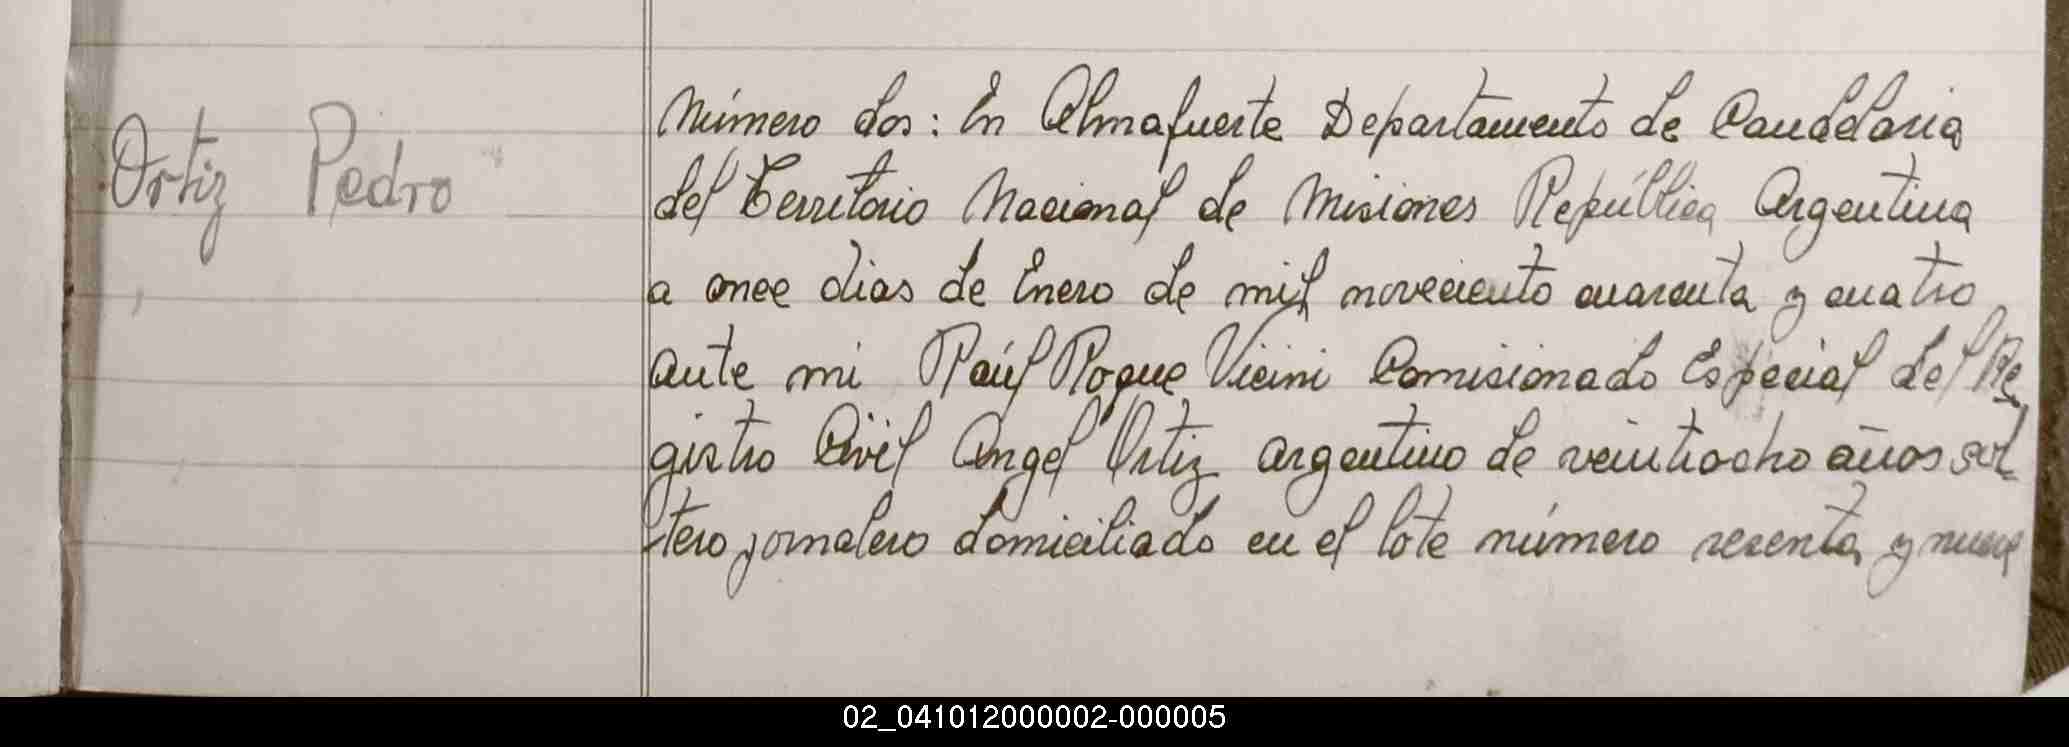 Ortiz Pedro
Número dos: En Almafuerte Departamento de Candelaria
del Territorio Nacional de Misiones República Argentina
a once dias de Enero de mil noveciento cuarenta y cuatro
ante mi Raúl Roque Vicini Comisionado Especial del Re
gistro Civil Angel Ortiz argentino de veintiocho años sol
tero jornalero domiciliado en el lote número sesenta y nueve
02_041012000002-000005